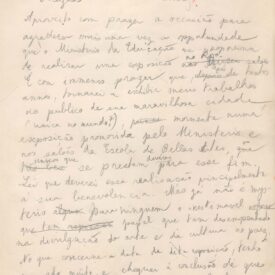 Aproveito com prazer a occasião para
agradecer mais uma vez a opportunidade
que o Ministerio da Educação me proporciona
de realizar uma exposição no Rio
E com enorme prazer que depois de tantos
annos, tornarei a exibir meus trabalhos
no publico de uma maravilhosa cidade
(unica no mundo?), mormente numa
exposição promovida pelo Ministerio e
nos salões da Escola de Bellas Artes, que
se prestam para esse fim.
Sei que deverei essa realização principalmente
a sua benevolencia. Mas já não é mys
terio para ninguem o
que tem papel que tem desempenhado
na divulgação da arte e da cultura no paiz.
No que concerne a data de dita exposição, tenho
e cheguei á conclusão de que